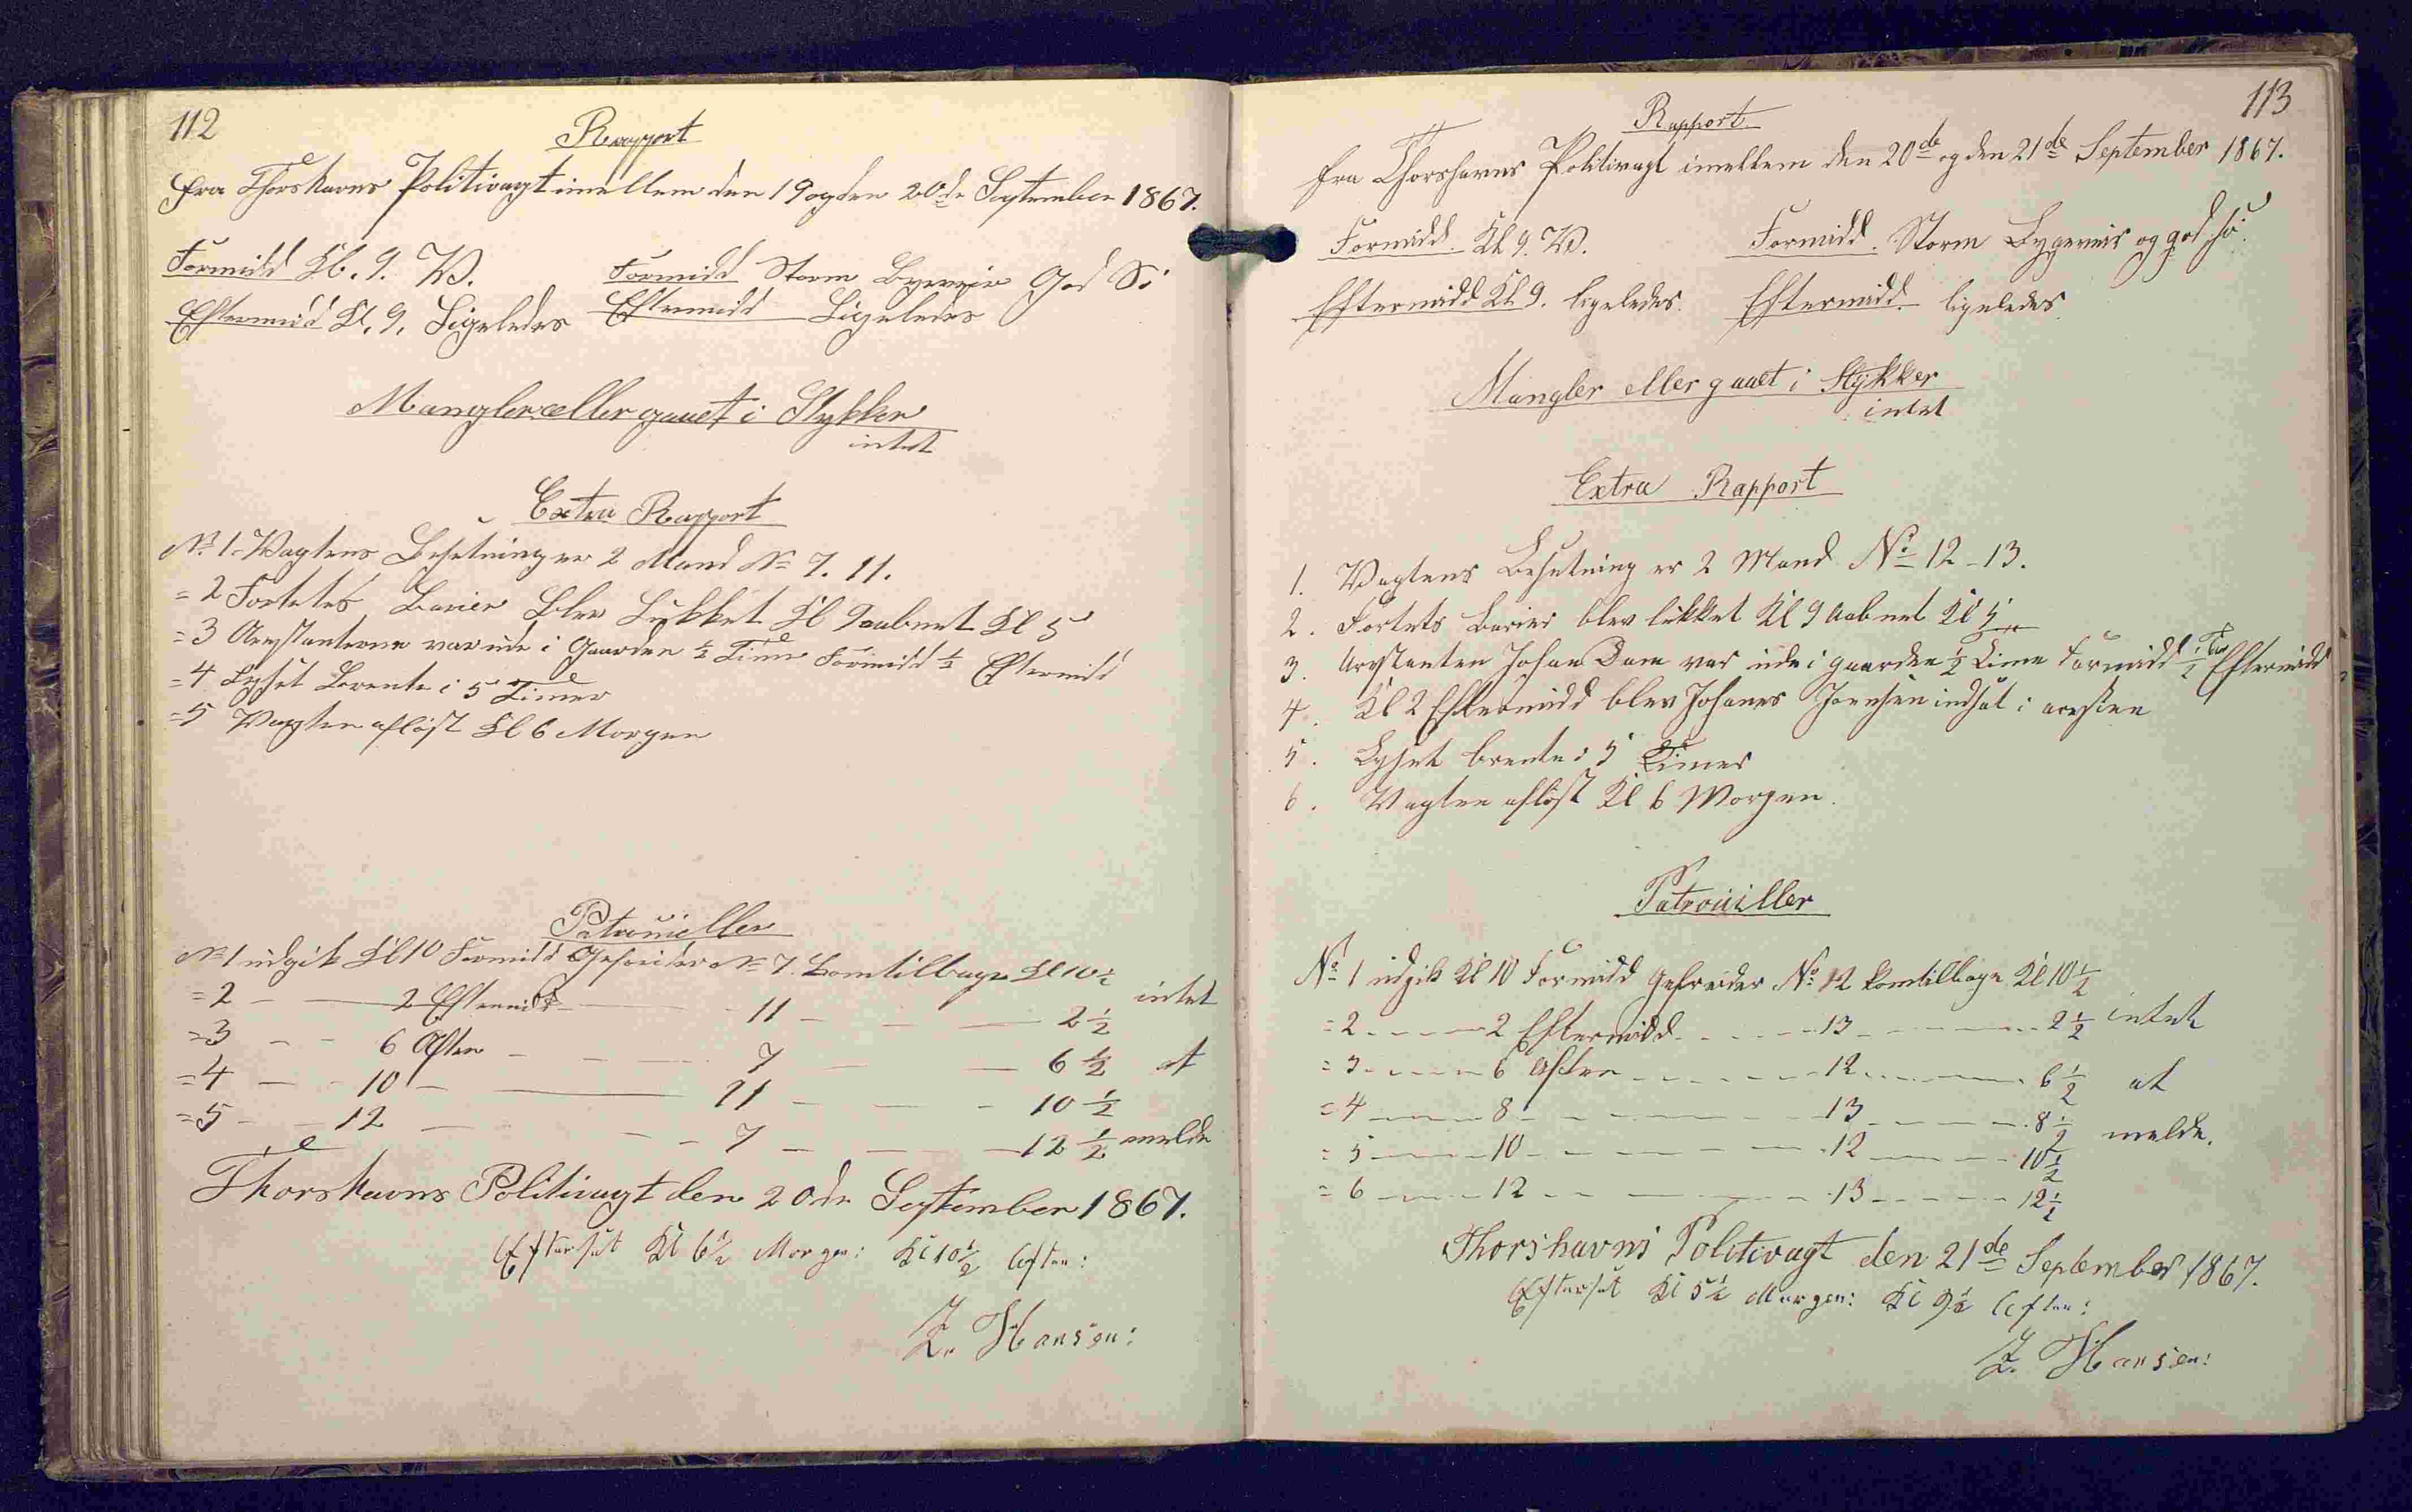 112
Rapport
fra Thorshavns Politivagt imellem den 19 og den 20de September 1867.
Formidd Kl. 9. V. Formidd Storm Bygeveir God Sö
Eftermid Kl. 9. Ligeledes Eftermidd Ligeledes
Mangler eller gaaet i Stykker
intet
Extra Rapport
No 1. Vagtens Besetning er 2 Mand No 7. 11.
= 2 Fortets Barier blev Lukket Kl 9 aabnet Kl 5
= 3 Arestanterne var ude i Gaarden ½ Time Formidd ½ Eftermidd
= 4 Lyset brente i 5 Timer
= 5 Vagten aflöst Kl 6 Morgen
Patrouiller
No 1 udgik Kl 10 Formidd Gefreider No 7. komtilbage Kl 10½
= 2 — — 2 Eftermidd — - 11 — — — 2½ intet
= 3 — - 6 Aften — — — 7 — — 6½ at
= 4 — - 10 — — 11 — — - 10½
= 5 - - 12 — — - 7 — — — 12½ melde
Thorshavns Politivagt den 20de September 1867.
Efterset Kl 6½ Morgen: Kl 10½ Aften:
Z. Hansen:
113
Rapport
fra Thorshavns Politivagt imellem den 20de og den 21de September 1867.
Formidd. Kl 9. V. Formidd. Storm Bygeveir og god Sö.
Eftermidd Kl 9. ligeledes. Eftermidd. ligeledes
Mangler eller gaaet i Stykker
intet
Extra Rapport
1. Vagtens Besetning er 2 Mand No 12 - 13.
2. Fortets Barier blev lukket Kl 9 Aabnet Kl 5
3. Arestanten Johan Dam var ude i gaarden ½ Time Formidd ½ Tim Eftermidd
4. Kl 2 Eftermidd blev Johanes Joensen indsat i aresten
5. Lyset brente i 5 Timer
6. Vagten aflöst Kl 6 Morgen.
Patrouiller
No 1 udgik Kl 10 Formidd Gefreider No 12 komtilbage Kl 10½
= 2 - - - - 2 Eftermidd - - - - 13 - - - - 2½ intet
= 3 - - - - 6 Aften - - - - 12 - - - - 6½ at
= 4 - - - - 8 - - - - 13 - - - - 8½ melde.
= 5 - - - - 10 - - - - 12 - - - - 10½
= 6 - - - - 12 - - - - 13 - - - - 12½
Thorshavns Politivagt den 21de September 1867.
Efterset Kl 5½ Morgen: Kl 9½ Aften:
Z. Hansen: